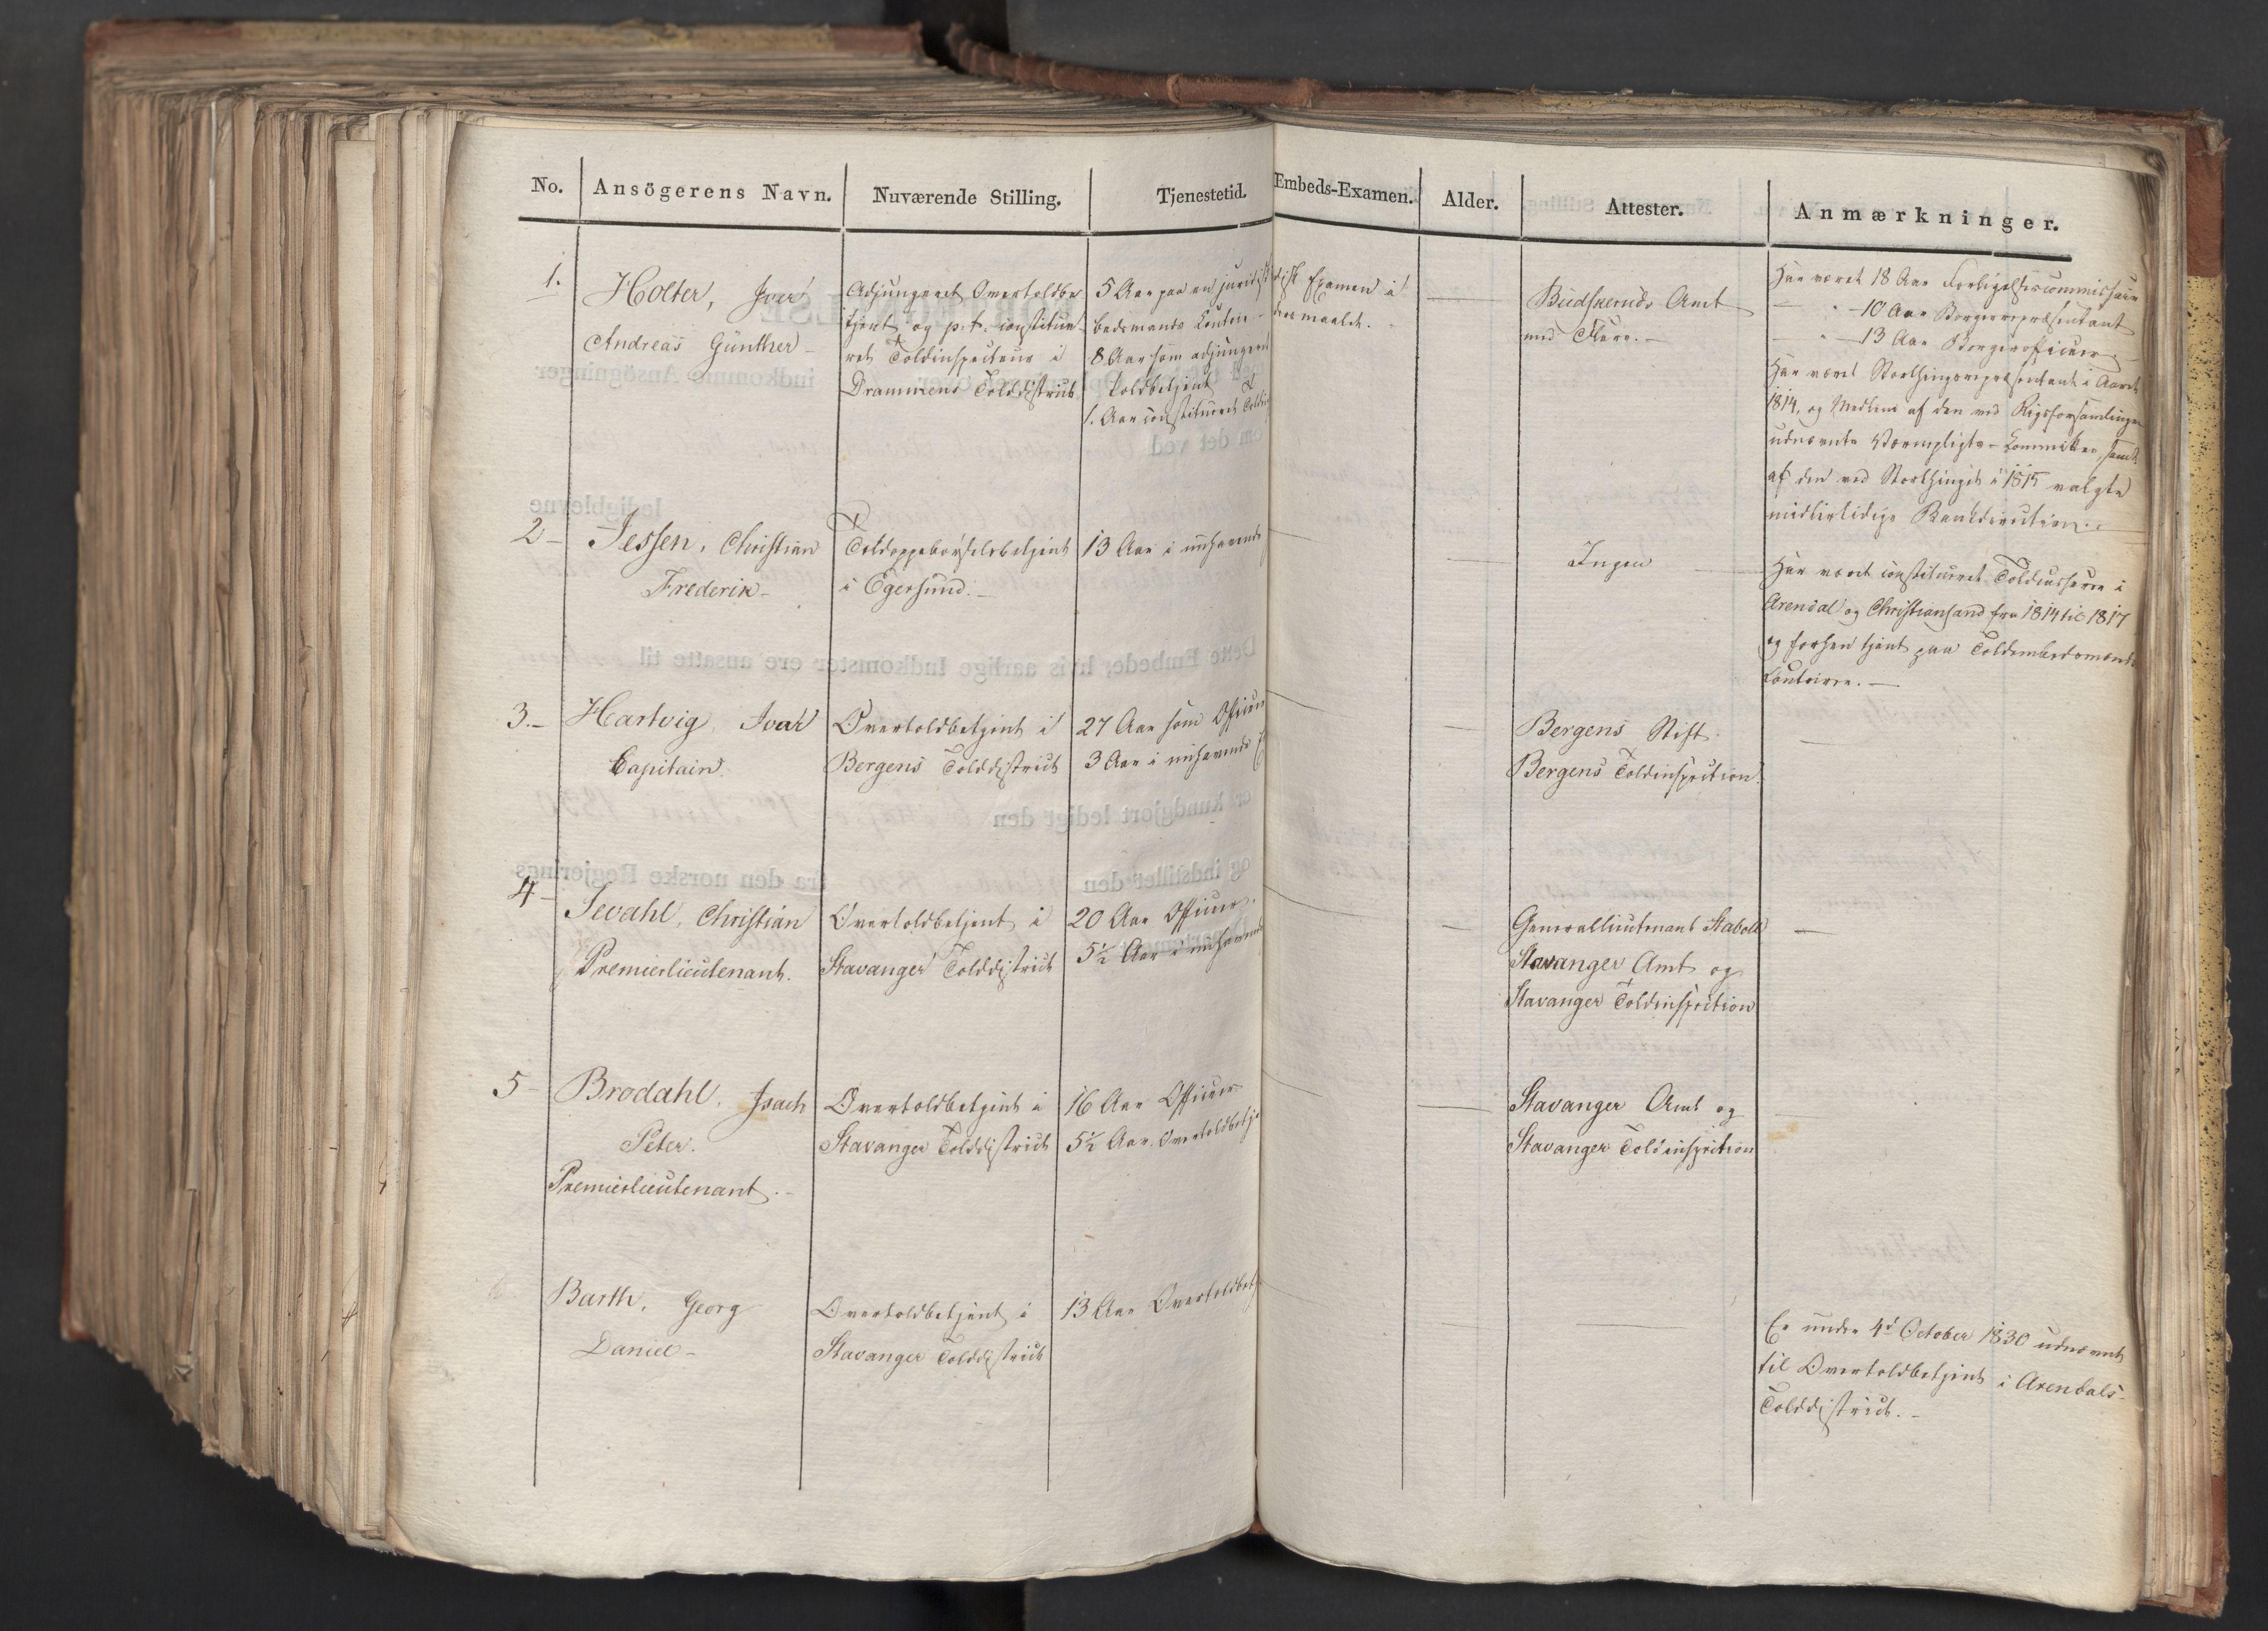 No. Ansögerens Navn. Nuværende Stilling. Tjenestetid. Embeds-Examen. Alder. Attester. Anmærkninger.
1.
Holter, Iver
Andreas Günther
Adjungeret Overtoldbe
tjent og p.t. constitue
ret Toldinspecteur i
Drammens Tolddistrict
5 Aar paa en juridisk
Embedsmands Contoir
8 Aar som adjungeret
Toldbetjent
1. Aar constitueret Toldin
Examen i
Budskeruds Amt
med Flere.
Har været 18 Aar Forligelsescommissair
- " - 10 Aar Borgerrepræsentant
- " - 13 Aar Borgerofficeer
Har været Storthingsrepræsentant i Aaret
1814, og Medlem af den ved Rigsforsamlingen
udnævnte Værnepligts-Committee, samt
af den ved Storthinget i 1815 valgte
midlertidige Bankdirection.
2
Jessen, Christian
Frederik
Toldoppebørselsbetjent
i Egersund.
13 Aar i nuhavende
Ingen
Har været constitueret Toldcasserer i
Arendal og Christiansand fra 1814 til 1817
og forhen tjent paa Toldembedsmænds
Contoirer.
3.
Hartvig, Ivar
Capitain.
Overtoldbetjent i
Bergens Tolddistrict
27 Aar som Officeer
3 Aar i nuhavende
Bergens Stift
Bergens Toldinspection
4
Sevahl, Christian
Premierlieutenant.
Overtoldbetjent i
Stavanger Tolddistrict
20 Aar Officeer.
5½ Aar i nuhavende
Generallieutenant Stabell
Stavanger Amt og
Stavanger Toldinspection
5
Brodahl, Isach
Peter.
Premierlieutenant.
Overtoldbetjent i
Stavanger Tolddistrict
16 Aar Officeer
5½ Aar Overtoldbetje
Stavanger Amt og
Stavanger Toldinspection
Barth, Georg
Daniel
Overtoldbetjent i
Stavanger Tolddistrict
13 Aar Overtoldbetj
Er under 4d October 1830 udnævnt
til Overtoldbetjent i Arendals
Tolddistrict.